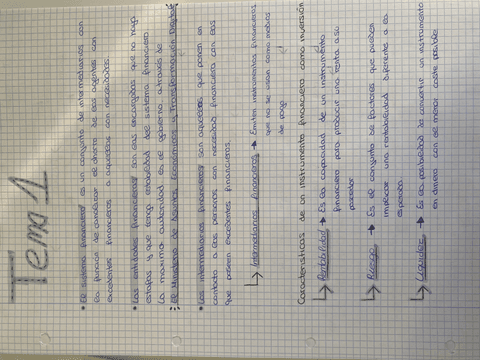 Tema 1
• El sistema financiero es un conjunto de intermediarios con
la función de canalizar el ahorro de los agentes con
excedentes financieros a aquellos con necesidades.
• Las entidades financieras son las encargadas que no haya
estafas y que tenga estabilidad del sistema financiero
La máxima autoridad es el gobierno a través de
el Ministerio de Asuntos Económicos y Transformación Digital
• Los intermediarios financieros son aquellos que ponen en
contacto a las personas con necesidad financiera con las
que poseen excedentes financieros.
↳ Intermediarios financieros → Emiten instrumentos financieros
que no se usan como medios
de pago
Características de un instrumento financiero como inversión
↳ Rentabilidad → Es la capacidad de un instrumento
financiero para producir una renta a su
poseedor
↳ Riesgo → Es el conjunto de factores que pueden
implicar una rentabilidad diferente a la
esperada.
↳ Liquidez → Es la posibilidad de convertir un instrumento
en dinero con el menor coste posible